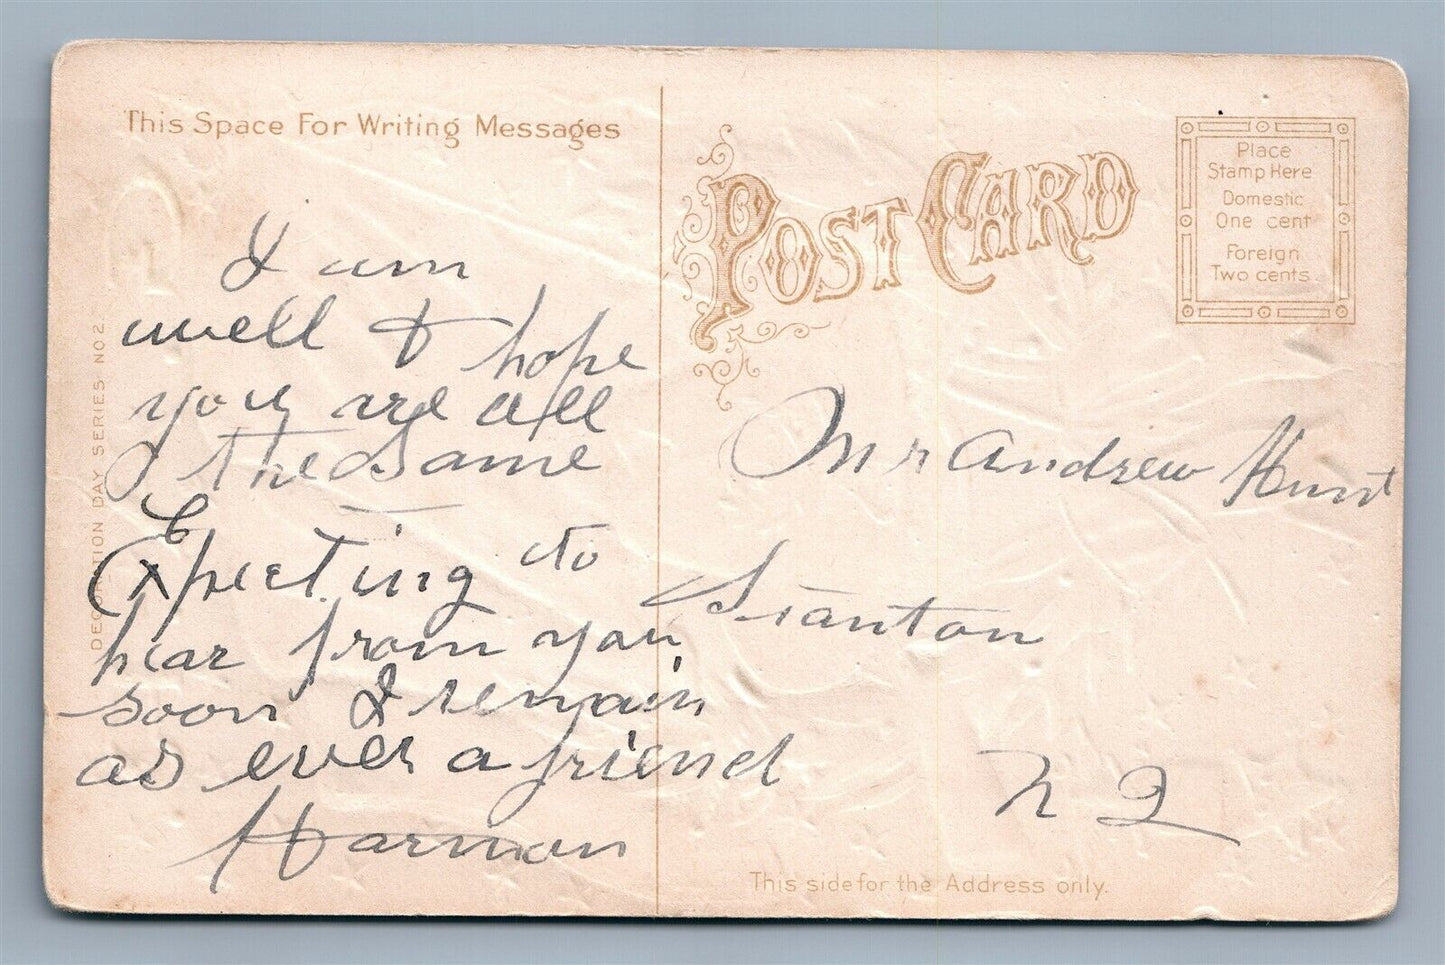 This Space For Writing Messages
I am
well & hope
you are all
the Same
Expecting to
hear from you
soon I remain
as ever a friend
Harman
DECORATION DAY SERIES NO 2
POST CARD
Place
Stamp Here
Domestic
One cent
Foreign
Two cents
Mr Andrew Hunt
Stanton
This side for the Address only.